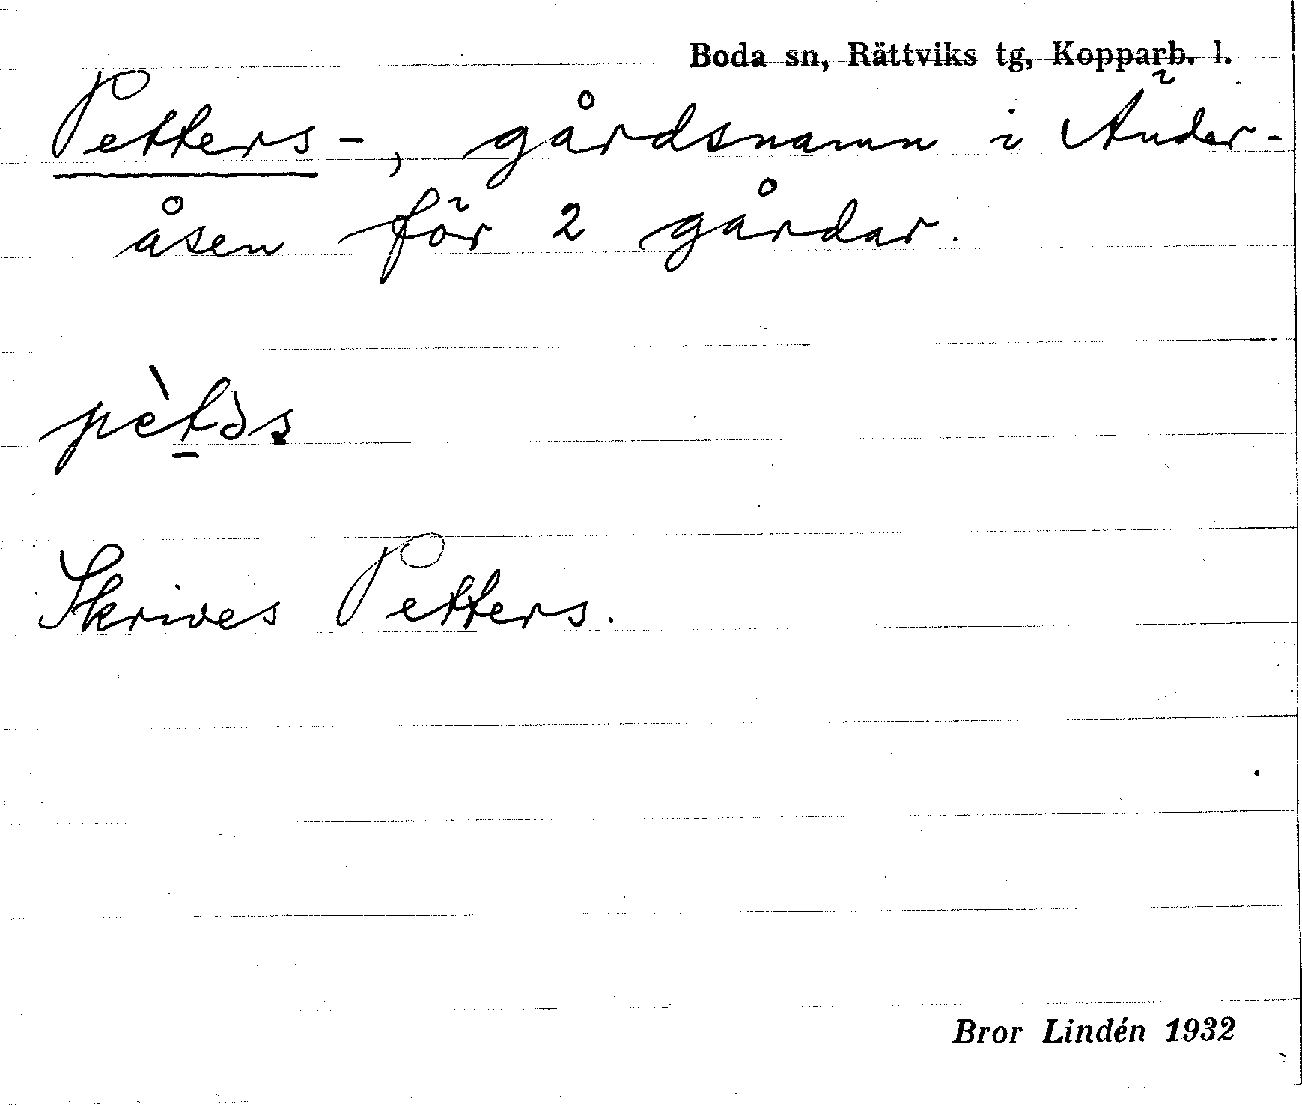 Boda sn, Rättviks tg, Kopparb. l.
Petters-, gårdsnamn i Änder-
åsen för 2 gårdar.
pèt̠əs
Skrives Petters.
Bror Lindén 1932